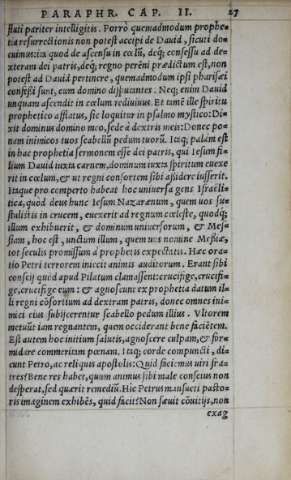 PARAPHR. CAP. II. 27
stati pariter intelligitis. Porrò quemadmodum prophe-
tia resurrectionis non potest accipi de Dauid, sicut do-
cuimus: ita quod de ascensu in cœlũ, deq; consessu ad de-
xteram dei patris, deq; regno perẽni prædictum est, non
potest ad Dauid pertinere, quemadmodum ipsi pharisæi
confessi sunt, cum domino disputantes. Neq; enim Dauid
unquam ascendit in cœlum rediuiuus. Et tamẽ ille spiritu
prophetico afflatus, sic loquitur in psalmo mystico: Di-
xit dominus domino meo, sede à dextris meis: Donec po-
nam inimicos tuos scabellũ pedum tuorũ. Itaq; palàm est
in hac prophetia sermonem esse dei patris, qui Iesum fi-
lium Dauid iuxta carnem, dominum iuxta spiritum euexe
rit in cœlum, & ut regni consortem sibi assidere iusserit.
Itaque pro comperto habeat hoc uniuersa gens Israëli-
tica, quod deus hunc Iesum Nazarænum, quem uos su-
stulistis in crucem, euexerit ad regnum cœleste, quodq;
illum exhibuerit, & dominum uniuersorum, & Mes-
siam, hoc est, unctum illum, quem uos nomine Messiæ,
tot seculis promissum à prophetis expectatis. Hæc ora-
tio Petri terrorem iniecit animis auditorum. Erant sibi
conscij quod apud Pilatum clamassent: crucifige, crucifi-
ge, crucifige eum: & agnoscunt ex prophetia datum il-
li regni cõsortium ad dextram patris, donec omnes ini-
mici eius subijcerentur scabello pedum illius. Vltorem
metuũt iam regnantem, quem occiderant bene faciẽtem.
Est autem hoc initium salutis, agnoscere culpam, & for-
midare commeritam pœnam. Itaq; corde compuncti, di-
cunt Petro, ac reliquis apostolis: Quid faciemus uiri fra-
tres? Bene res habet, quum animus sibi male conscius non
desperat, sed quærit remediũ. Hic Petrus mansueti pasto-
ris imaginem exhibẽs, quid facit? Non sæuit cõuitijs, non
exag